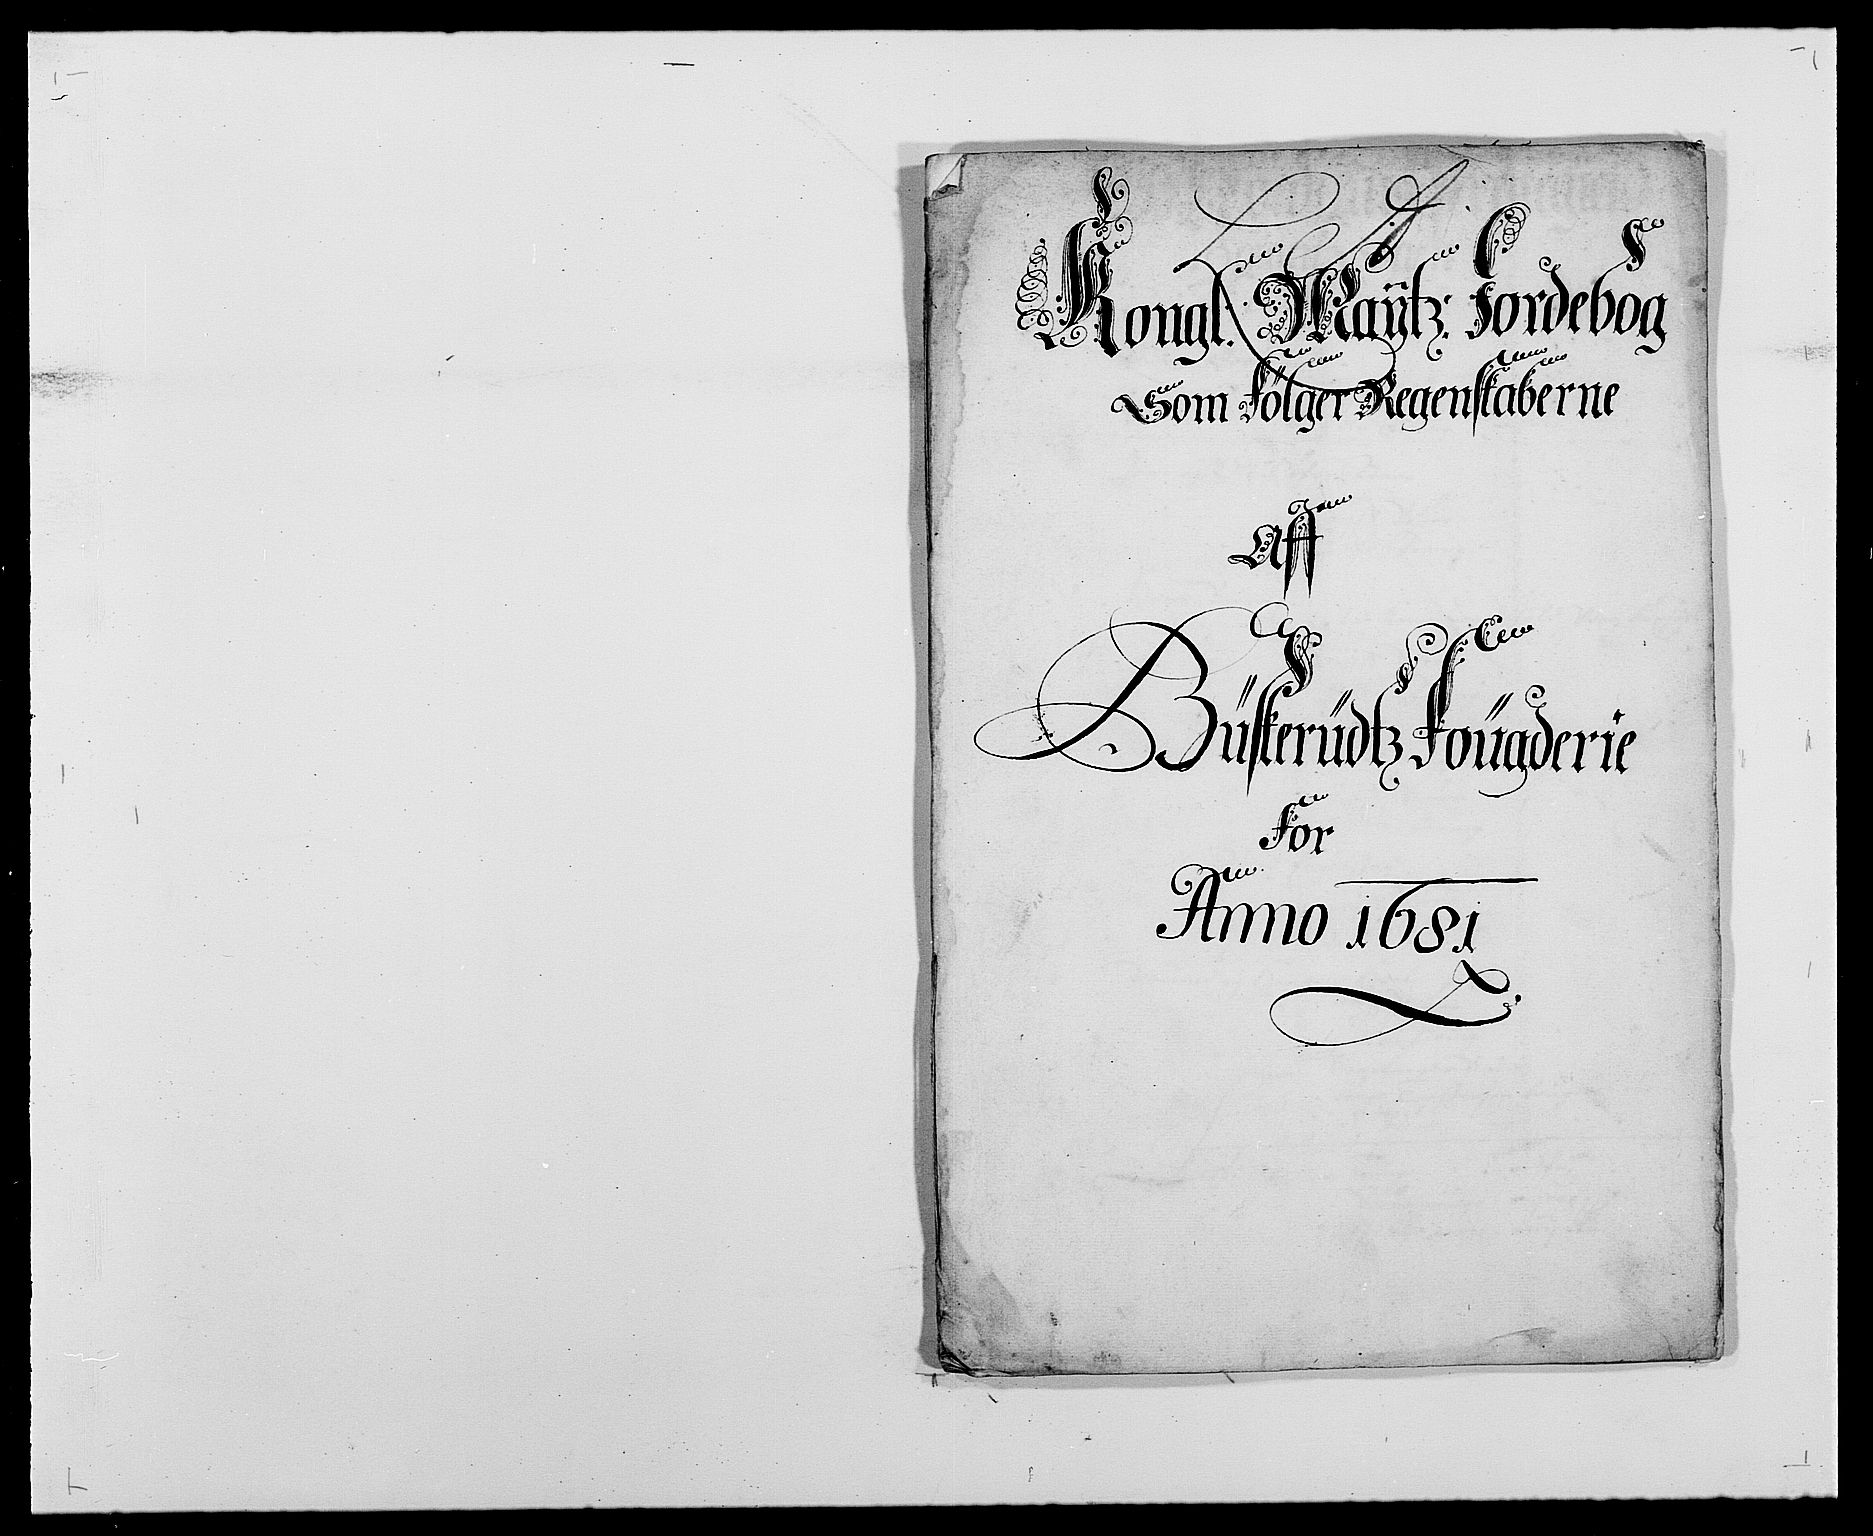 L A
Kongl. Maÿtz: Jordebog
Som Fölger Regenskaberne
Aff
Büskerüdtz Foügderie
For
Anno 1681